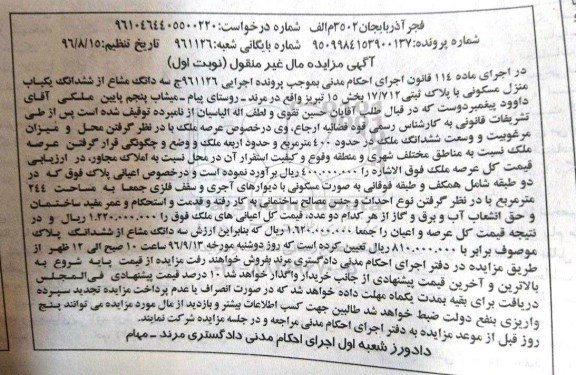 فجر آذربایجان ۳۵۰۲ م الف شماره درخواست: ۹۶۱۰۴۶۴۴۰۵۵۰۰۲۲۰
شماره پرونده: ۹۵۰۹۹۸۴۱۵۳۹۰۰۱۳۷ شماره بایگانی شعبه: ۹۶۱۱۲۶ تاریخ تنظیم: ۹۶/۸/۱۵
آگهی مزایده مال غیر منقول (نوبت اول)
در اجرای ماده ۱۱۴ قانون اجرای احکام مدنی بموجب پرونده اجرایی ۹۶۱۱۲۶ج سه دانگ مشاع از ششدانگ یکباب
منزل مسکونی با پلاک ثبتی ۱۷/۷۱۲ بخش ۱۵ تبریز واقع در مرند ـ روستای پیام ـ میشاب پنجم پایین ملکی آقای
داوود پیغمبردوست که در قبال طلب آقایان حسین تقوی و لطف اله الیاسیان از نامبرده توقیف شده است پس از طی
تشریفات قانونی به کارشناس رسمی قوه قضائیه ارجاع، وی درخصوص عرصه ملک با در نظر گرفتن محل و میزان
مرغوبیت و وسعت ششدانگ ملک در حدود ۴۰۰ مترمربع و حدود اربعه ملک و وضع و چگونگی قرار گرفتن عرصه
ملک نسبت به مناطق مختلف شهری و منطقه وقوع و کیفیت استقرار آن در محل نسبت به املاک مجاور، در ارزیابی
قیمت کل عرصه ملک فوق الاشاره را ۴۰۰.۰۰۰.۰۰۰ ریال برآورد نموده است و درخصوص اعیانی پلاک فوق که در
دو طبقه شامل همکف و طبقه فوقانی به صورت مسکونی با دیوارهای آجری و سقف فلزی جمعا به مساحت ۲۴۴
مترمربع با در نظر گرفتن نوع احداث و جنس مصالح ساختمانی به کار رفته و قدمت و استحکام و عمر مفید ساختمان
و حق انشعاب آب و برق و گاز از هر کدام دو عدد، قیمت کل اعیانی های ملک فوق را ۱.۲۲۰.۰۰۰.۰۰۰ ریال و در
نتیجه قیمت کل عرصه و اعیان را جمعا ۱.۶۲۰.۰۰۰.۰۰۰ ریال که بنابراین ارزش سه دانگ مشاع از ششدانگ پلاک
موصوف برابر با ۸۱۰.۰۰۰.۰۰۰ ریال تعیین کرده است که روز دوشنبه مورخه ۹۶/۹/۱۳ ساعت ۱۰ صبح الی ۱۲ ظهر از
طریق مزایده در دفتر اجرای احکام مدنی دادگستری مرند بفروش خواهند رفت مزایده از قیمت پایه شروع به
بالاترین و آخرین قیمت پیشنهادی از جانب خریدار واگذار خواهد شد ۱۰ درصد قیمت پیشنهادی فی المجلس
دریافت برای بقیه بمدت یکماه مهلت داده خواهد شد که در صورت انصراف یا عدم پرداخت مزایده تجدید سپرده
واریزی بنفع دولت ضبط خواهد شد طالبین جهت کسب اطلاعات بیشتر و بازدید از مال مورد مزایده می توانند پنج
روز قبل از موعد مزایده به دفتر اجرای احکام مدنی مراجعه و در جلسه مزایده شرکت نمایند.
دادورز شعبه اول اجرای احکام مدنی دادگستری مرند ـ مهام